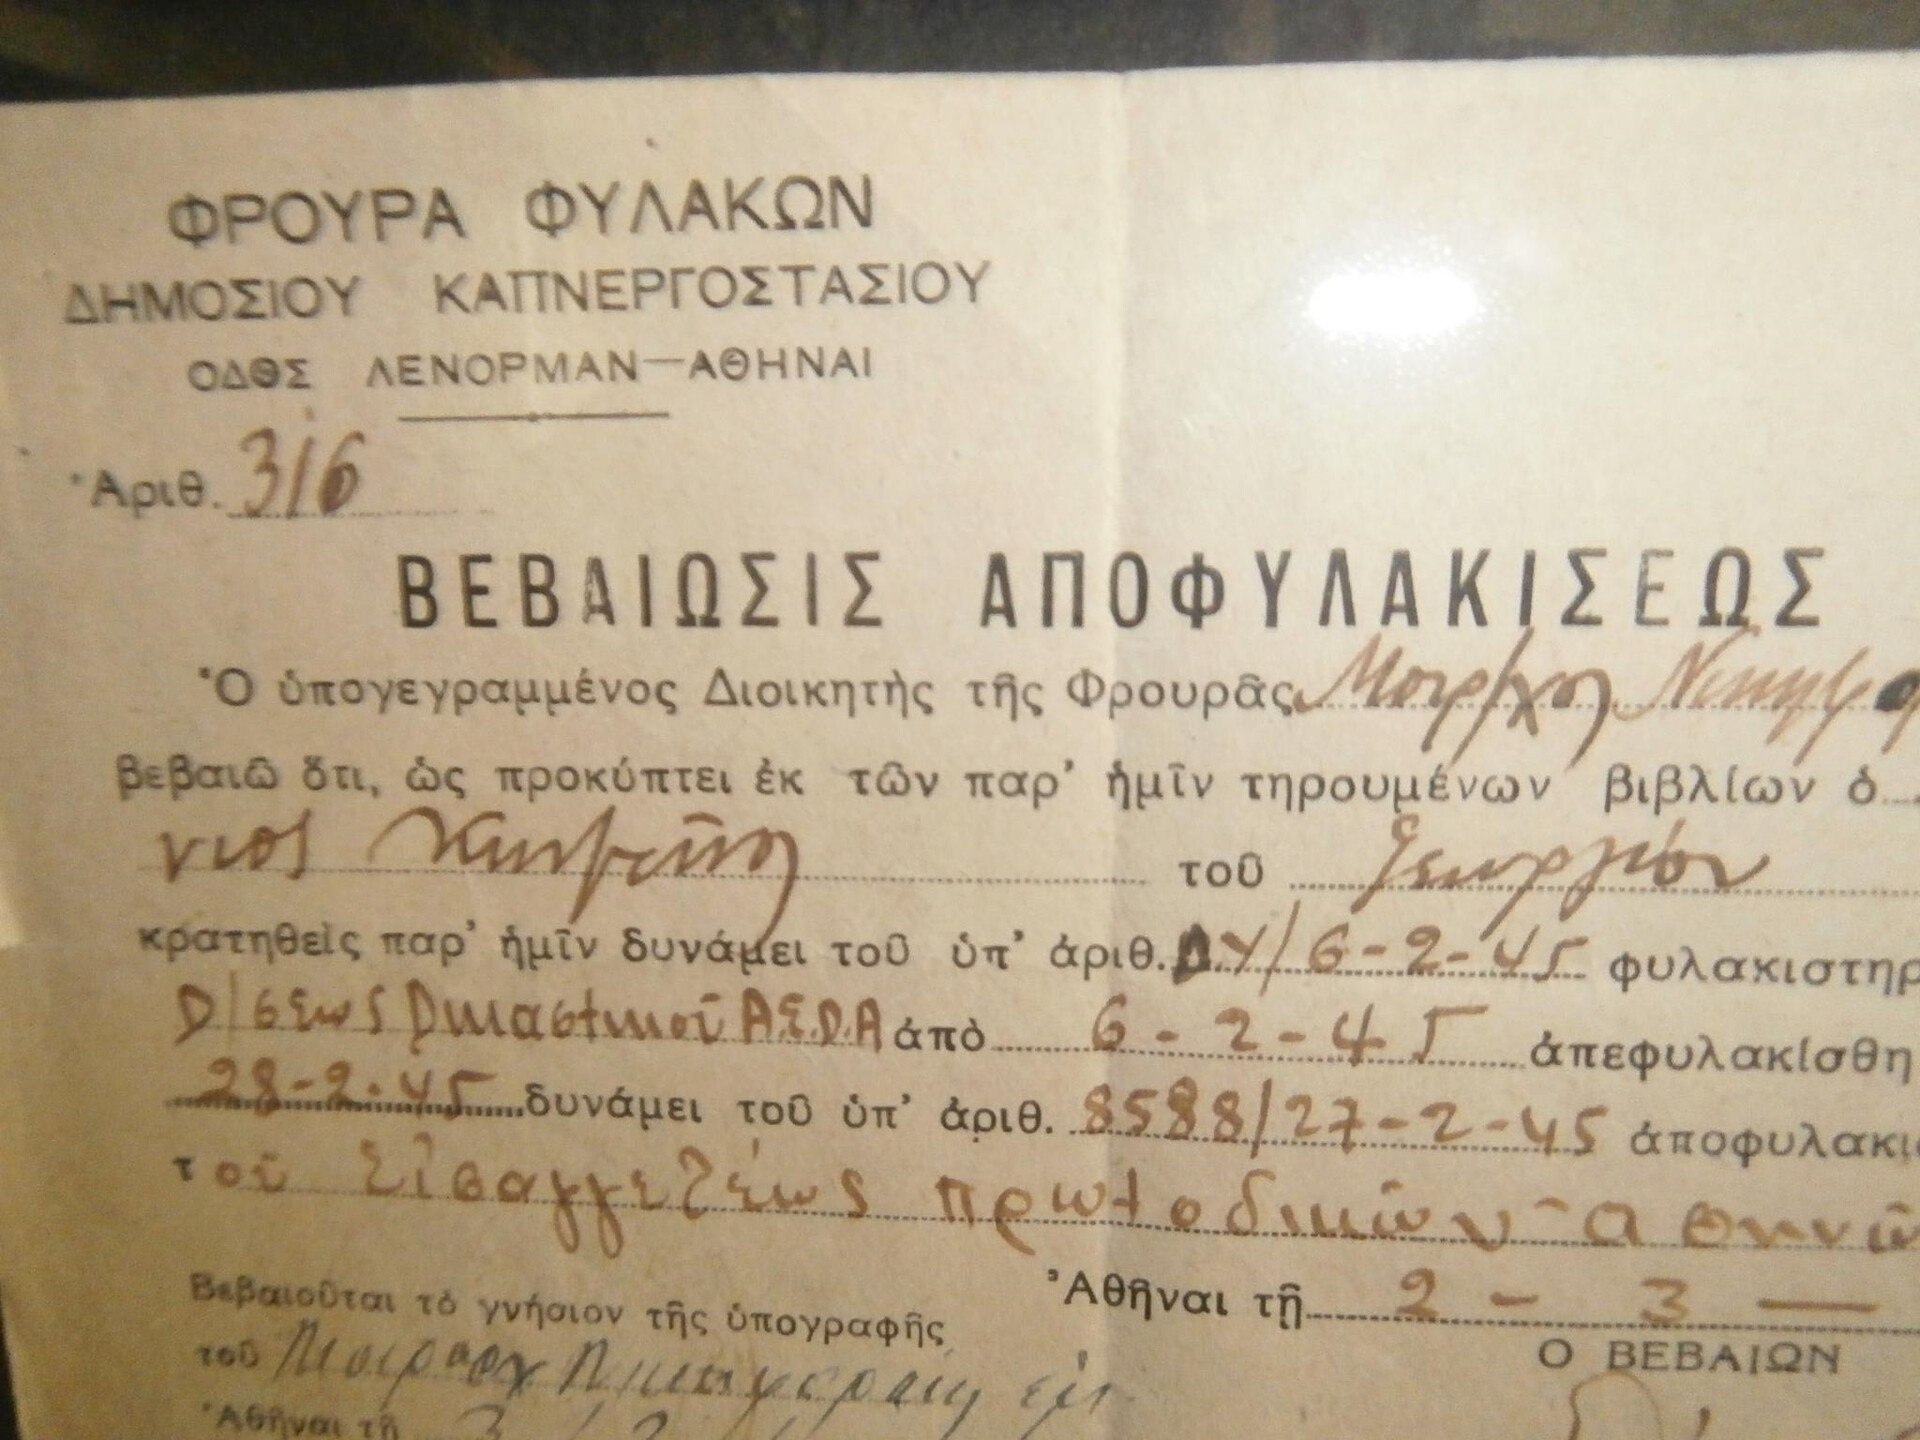 ΦΡΟΥΡΑ ΦΥΛΑΚΩΝ
ΔΗΜΟΣΙΟΥ ΚΑΠΝΕΡΓΟΣΤΑΣΙΟΥ
ΟΔΟΣ ΛΕΝΟΡΜΑΝ—ΑΘΗΝΑΙ
Ἀριθ. 316
ΒΕΒΑΙΩΣΙΣ ΑΠΟΦΥΛΑΚΙΣΕΩΣ
Ὁ ὑπογεγραμμένος Διοικητὴς τῆς Φρουρᾶς Μοίραρχος
βεβαιῶ ὅτι, ὡς προκύπτει ἐκ τῶν παρ' ἡμῖν τηρουμένων βιβλίων ὁ
νιος τοῦ Γεωργίου
κρατηθεὶς παρ' ἡμῖν δυνάμει τοῦ ὑπ' ἀριθ. Δ.Υ/6-2-45 φυλακιστηρ
Δ/σεως Δικαστικοῦ Α.Σ.Δ.Α ἀπὸ 6-2-45 ἀπεφυλακίσθη
28-2-45 δυνάμει τοῦ ὑπ' ἀριθ. 8588/27-2-45 ἀποφυλακι
τοῦ Εἰσαγγελέως πρωτοδικῶν Ἀθηνῶ
Βεβαιοῦται τὸ γνήσιον τῆς ὑπογραφῆς
Ἀθῆναι τῇ 2 - 3 —
τοῦ Μοιράρχ
Ο ΒΕΒΑΙΩΝ
Ἀθῆναι τῇ 3